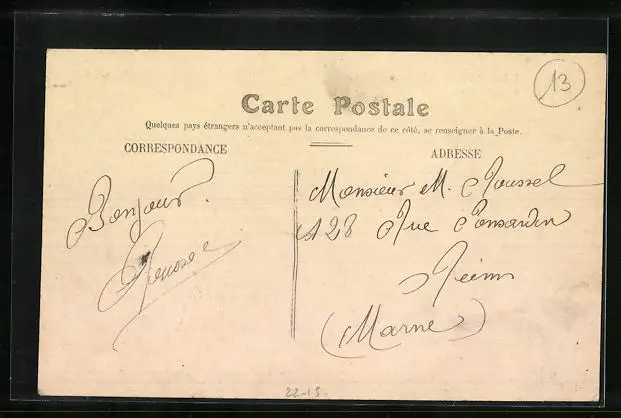 13
Carte Postale
Quelques pays étrangers n'acceptant pas la correspondance de ce côté, se renseigner à la Poste.
CORRESPONDANCE
ADRESSE
Bonjour.
Roussel
Monsieur M. Roussel
128 Rue Ponsardin
Reims
(Marne)
22-15